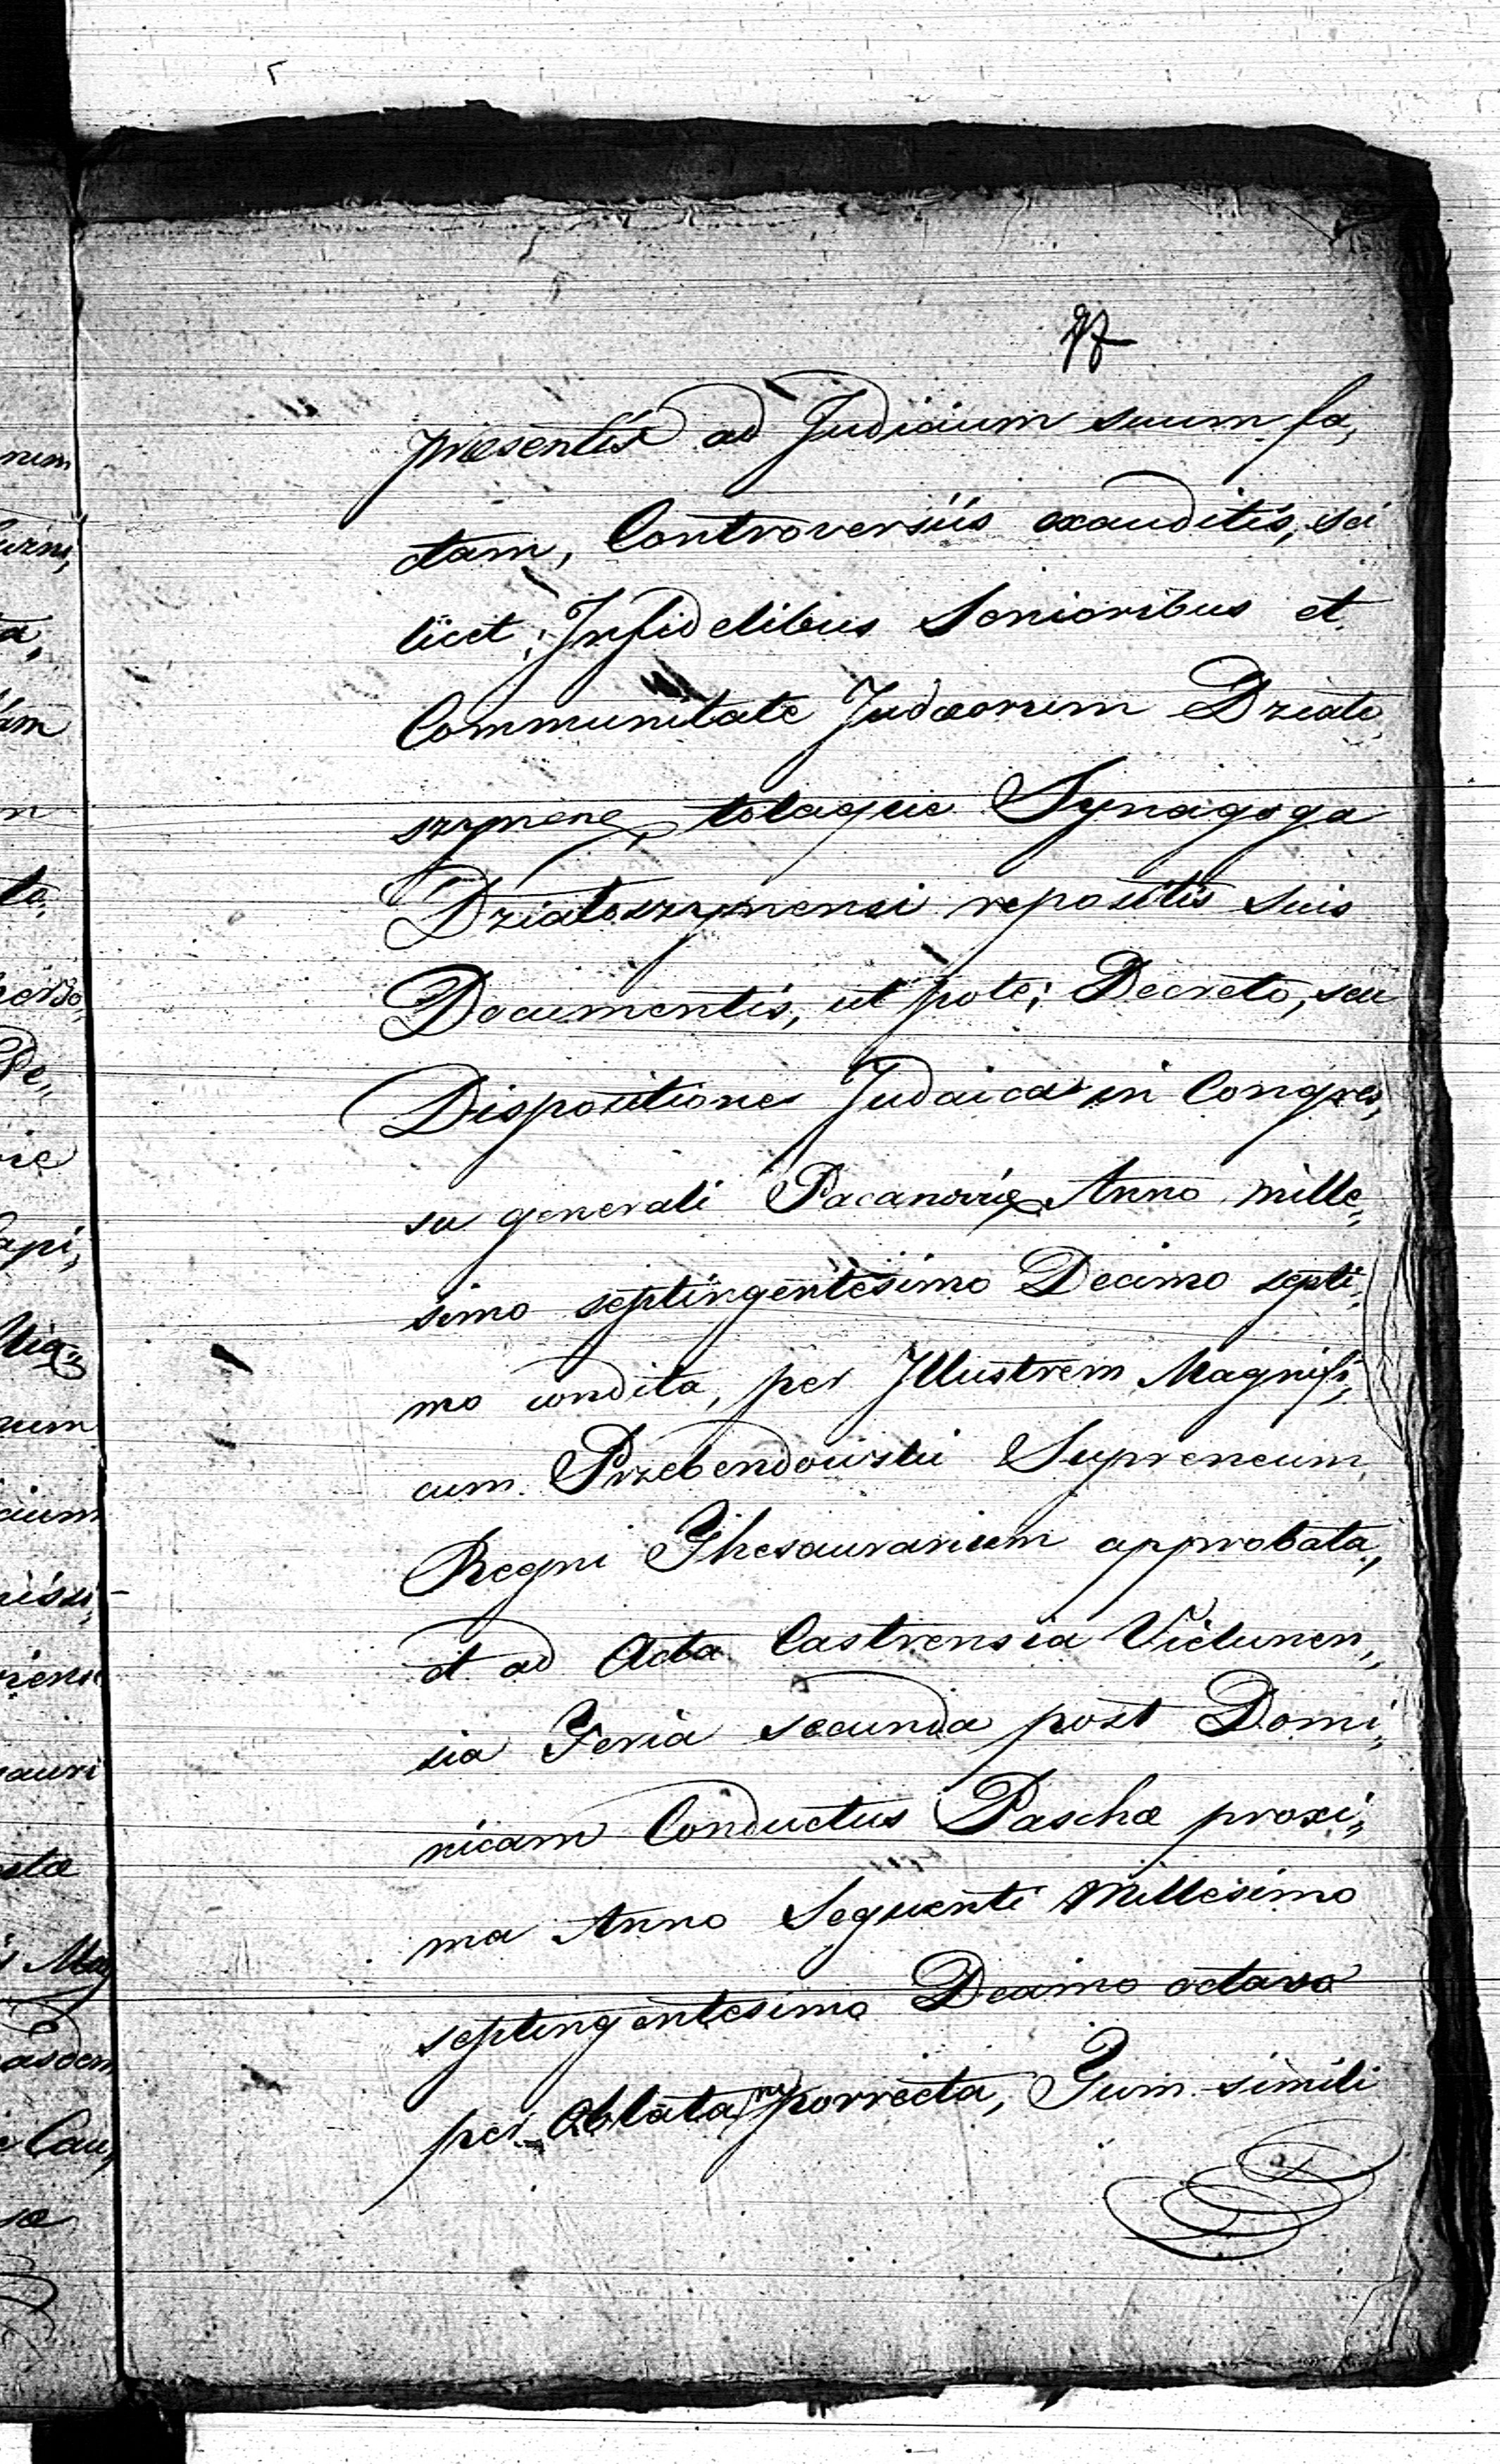 præsentis ad Judicium suum fa„
ctam, Controversiis exauditis, sci
licet; Infidelibus Senioribus et
Communitate Judæorum Dziato„
szynen: totaque Synagoga
Dziatoszynensi repositis suis
Documentis, ut pote; Decreto, seu
Dispositione Judaica in Congres„
su generali Pacanoviæ Anno mille„
simo septingentesimo Decimo septi„
mo condita, per Illustrem Magnifi„
cum Przebendowski Supremum
Regni Thesaurarium approbata,
et ad Acta Castrensia Vielunen„
sia Feria secunda post Domi„
nicam Conductus Paschæ proxi„
ma Anno Sequenti Millesimo
septingentesimo Decimo octavo
per Oblatam porrecta, Tum simili
num
ta„
am
n
to„
rie
api„
num
cium
auri
Mag
asdem
Cau„